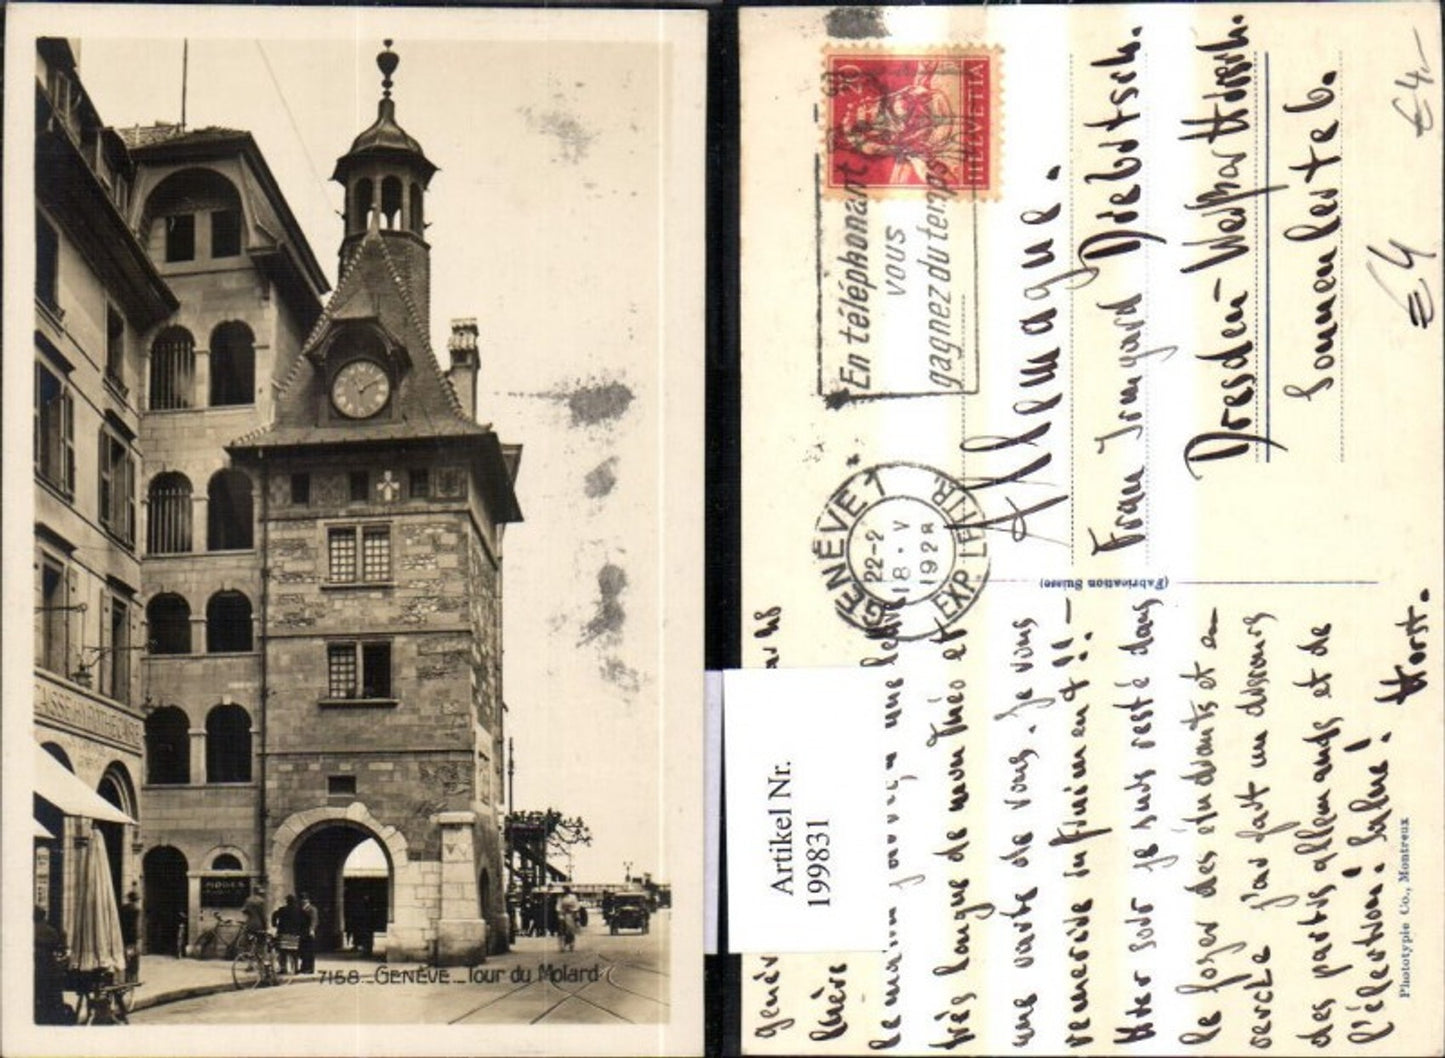 CAISSE HYPOTHÉCAIRE
MODES
7158 _ GENÈVE _ Tour du Molard
HELVETIA
En téléphonant
vous
gagnez du temps
GENÈVE 1
22-2
18 • V
1928
EXP. LETTR.
Allemagne.
Frau Irmgard Diebitsch.
Dresden-Weißer Hirsch.
Sonnenleite 6.
€4.-
€4
(Fabrication Suisse)
Artikel Nr.
199831
chère
le matin une
très longue de mon Théo et
une carte de vous. Je vous
remercie infiniment!! —
Hier soir je suis resté dans
le foyer des étudiants et
cercle j'ai fait un discours
des partis allemands et de
l'élection! Salue! Horst.
Phototypie Co., Montreux